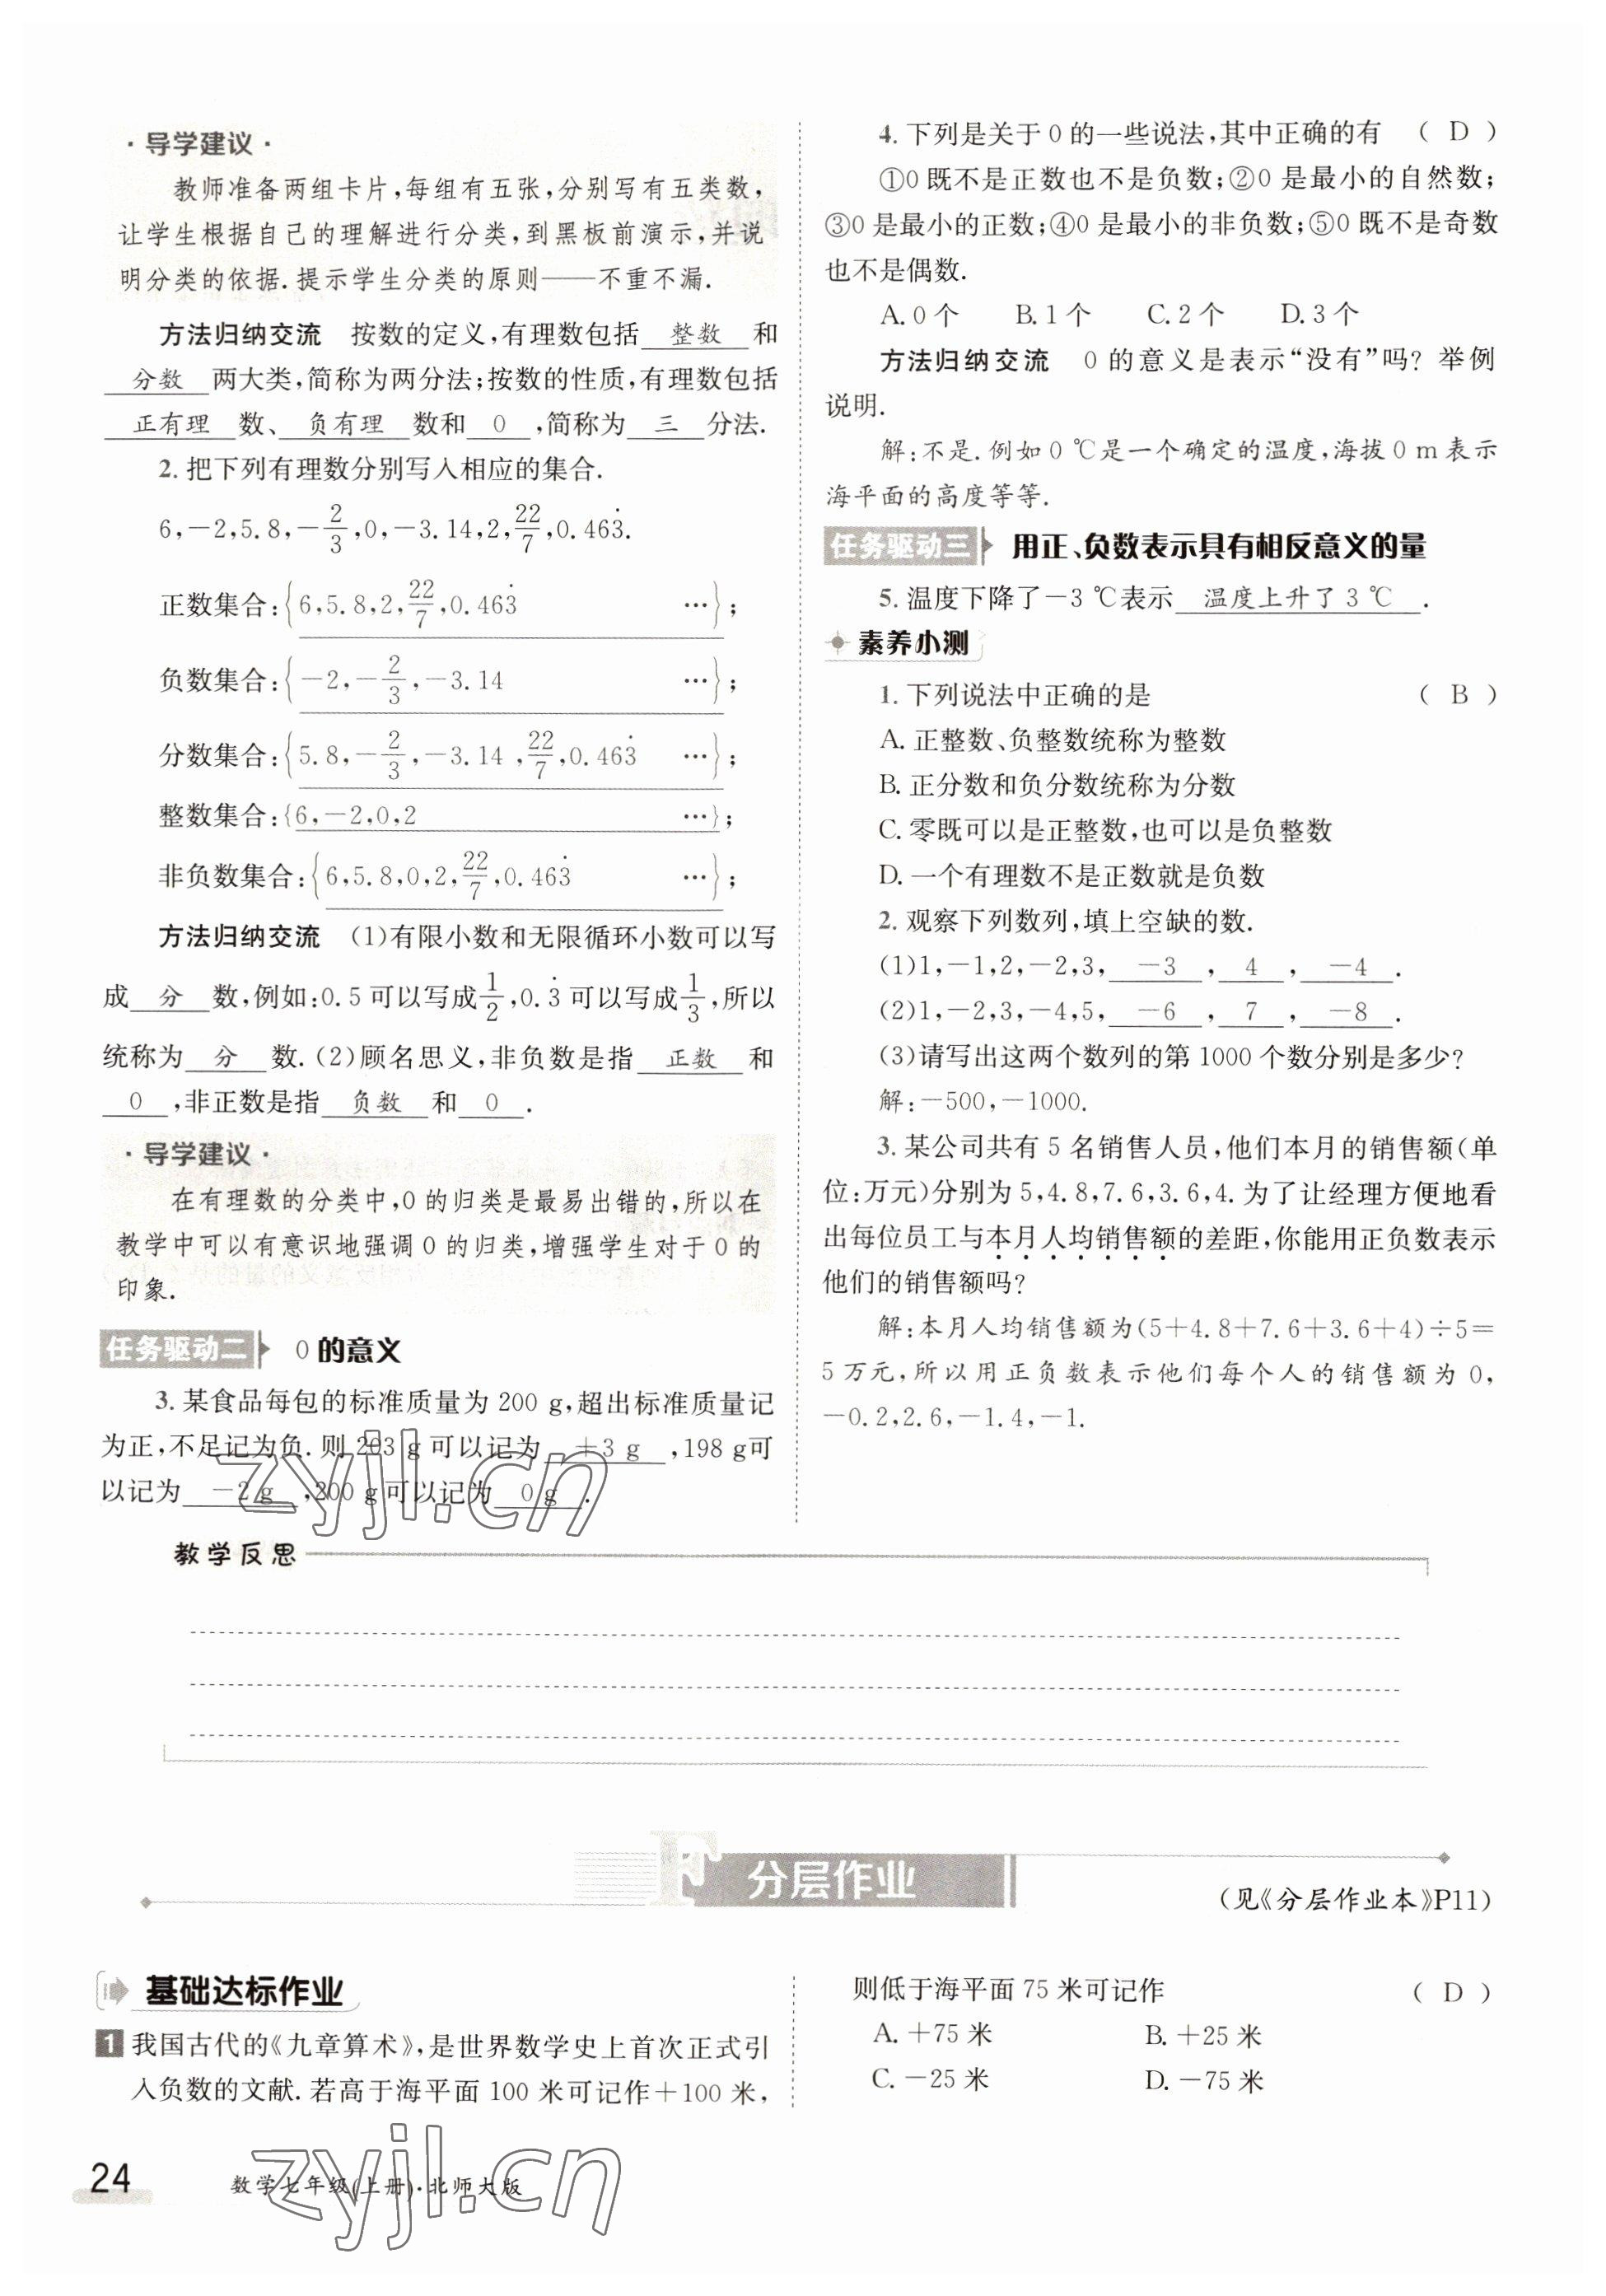 · 导学建议 ·
教师准备两组卡片,每组有五张,分别写有五类数,
让学生根据自己的理解进行分类,到黑板前演示,并说
明分类的依据.提示学生分类的原则——不重不漏.
方法归纳交流 按数的定义,有理数包括 整数 和
分数 两大类,简称为两分法;按数的性质,有理数包括
正有理 数、 负有理 数和 0 ,简称为 三 分法.
2. 把下列有理数分别写入相应的集合.
6,-2,5.8,-2/3,0,-3.14,2,22/7,0.463̇.
正数集合:{6,5.8,2,22/7,0.463̇ …};
负数集合:{-2,-2/3,-3.14 …};
分数集合:{5.8,-2/3,-3.14,22/7,0.463̇ …};
整数集合:{6,-2,0,2 …};
非负数集合:{6,5.8,0,2,22/7,0.463̇ …};
方法归纳交流 (1)有限小数和无限循环小数可以写
成 分 数,例如:0.5可以写成1/2,0.3̇可以写成1/3,所以
统称为 分 数.(2)顾名思义,非负数是指 正数 和
0 ,非正数是指 负数 和 0 .
· 导学建议 ·
在有理数的分类中,0的归类是最易出错的,所以在
教学中可以有意识地强调0的归类,增强学生对于0的
印象.
任务驱动二 0的意义
3. 某食品每包的标准质量为200 g,超出标准质量记
为正,不足记为负.则203 g可以记为 +3 g ,198 g可
以记为 -2 g ,200 g可以记为 0 g .
4. 下列是关于0的一些说法,其中正确的有 ( D )
①0既不是正数也不是负数;②0是最小的自然数;
③0是最小的正数;④0是最小的非负数;⑤0既不是奇数
也不是偶数.
A. 0个 B. 1个 C. 2个 D. 3个
方法归纳交流 0的意义是表示“没有”吗?举例
说明.
解:不是.例如0 ℃是一个确定的温度,海拔0 m表示
海平面的高度等等.
任务驱动三 用正、负数表示具有相反意义的量
5. 温度下降了-3 ℃表示 温度上升了3 ℃ .
素养小测
1. 下列说法中正确的是 ( B )
A. 正整数、负整数统称为整数
B. 正分数和负分数统称为分数
C. 零既可以是正整数,也可以是负整数
D. 一个有理数不是正数就是负数
2. 观察下列数列,填上空缺的数.
(1)1,-1,2,-2,3, -3 , 4 , -4 .
(2)1,-2,3,-4,5, -6 , 7 , -8 .
(3)请写出这两个数列的第1000个数分别是多少?
解:-500,-1000.
3. 某公司共有5名销售人员,他们本月的销售额(单
位:万元)分别为5,4.8,7.6,3.6,4.为了让经理方便地看
出每位员工与本月人均销售额的差距,你能用正负数表示
他们的销售额吗?
解:本月人均销售额为(5+4.8+7.6+3.6+4)÷5=
5万元,所以用正负数表示他们每个人的销售额为0,
-0.2,2.6,-1.4,-1.
zyjl.cn
教学反思
F 分层作业
(见《分层作业本》P11)
基础达标作业
1 我国古代的《九章算术》,是世界数学史上首次正式引
入负数的文献.若高于海平面100米可记作+100米,
则低于海平面75米可记作 ( D )
A. +75米 B. +25米
C. -25米 D. -75米
zyjl.cn
24 数学七年级(上册)·北师大版